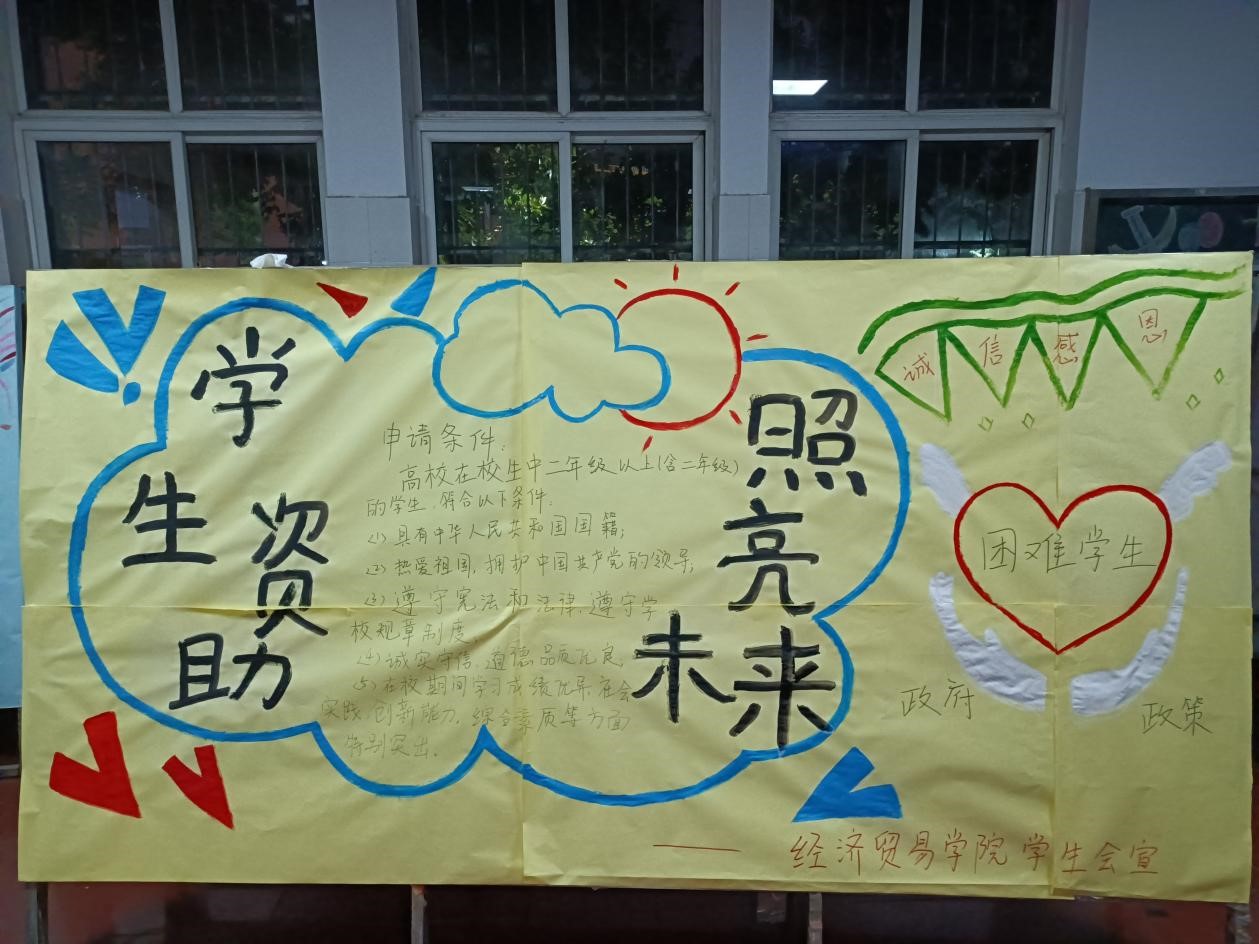 学生资助
照亮未来
申请条件:
高校在校生中二年级以上(含二年级)
的学生,符合以下条件:
(1)具有中华人民共和国国籍;
(2)热爱祖国,拥护中国共产党的领导;
(3)遵守宪法和法律,遵守学
校规章制度;
(4)诚实守信,道德品质优良;
(5)在校期间学习成绩优异,社会
实践、创新能力、综合素质等方面
特别突出.
诚信感恩
困难学生
政府
政策
——经济贸易学院学生会宣